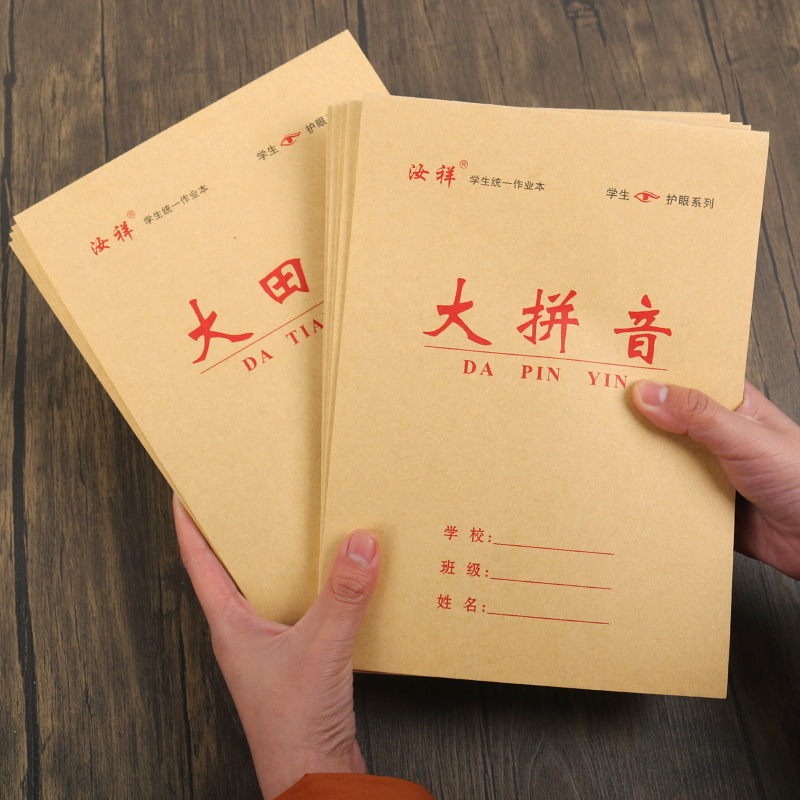 汝祥® 学生统一作业本
学生 护眼系
大田
DA TIA
汝祥® 学生统一作业本
学生 护眼系列
大拼音
DA PIN YIN
学校:
班级:
姓名: